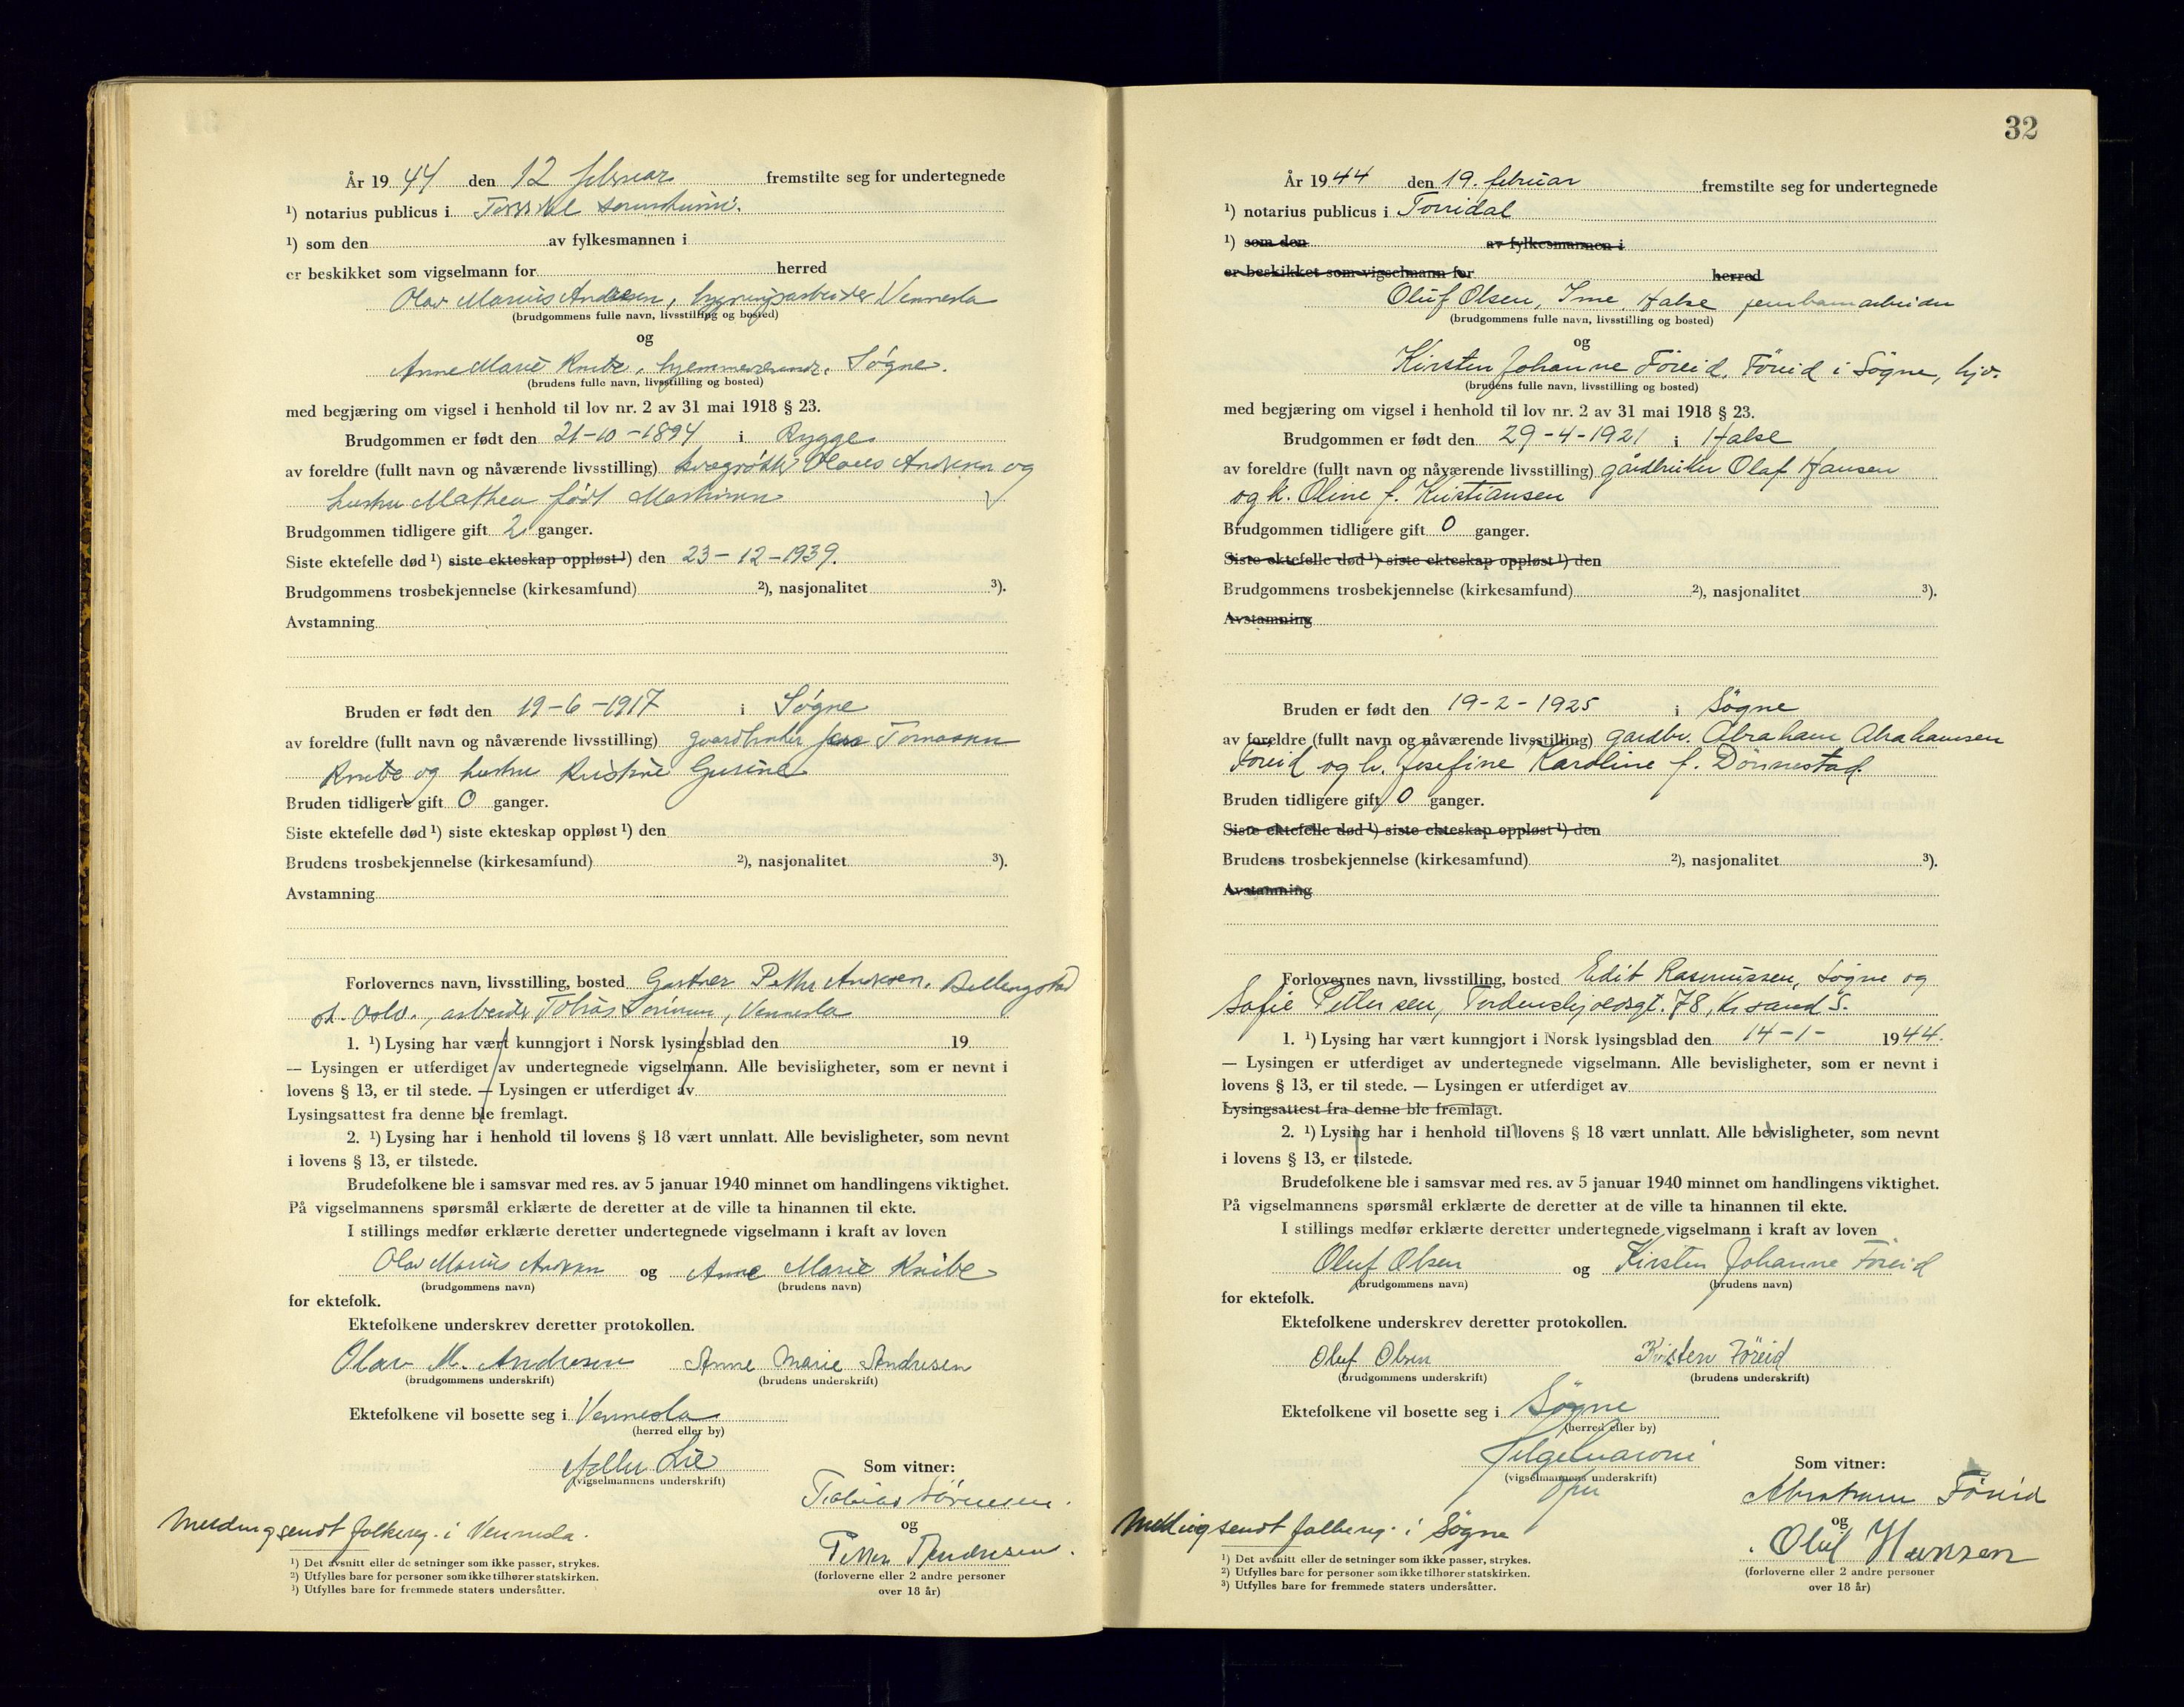 År 1944 den 12 februar fremstilte seg for undertegnede
¹) notarius publicus i
¹) som den av fylkesmannen i
er beskikket som vigselmann for herred
Olav Marius Andresen, Vennesla
(brudgommens fulle navn, livsstilling og bosted)
og
Anne Marie Knibe, Søgne.
(brudens fulle navn, livsstilling og bosted)
med begjæring om vigsel i henhold til lov nr. 2 av 31 mai 1918 § 23.
Brudgommen er født den 21-10-1894 i Rygge
av foreldre (fullt navn og nåværende livsstilling) Olaves Andresen og
hustru Mathea født
Brudgommen tidligere gift 2 ganger.
Siste ektefelle død ¹) siste ekteskap oppløst ¹) den 23-12-1939.
Brudgommens trosbekjennelse (kirkesamfund) ²), nasjonalitet ³).
Avstamning
Bruden er født den 19-6-1917 i Søgne
av foreldre (fullt navn og nåværende livsstilling) gaardbruker Jens Tomassen
Knibe og hustru Kristine Gurine
Bruden tidligere gift 0 ganger.
Siste ektefelle død ¹) siste ekteskap oppløst ¹) den
Brudens trosbekjennelse (kirkesamfund) ²), nasjonalitet ³).
Avstamning
Forlovernes navn, livsstilling, bosted Gartner Petter Andresen, Billingstad
st. Oslo., arbeider Tobias Sørensen, Vennesla
1. ¹) Lysing har vært kunngjort i Norsk lysingsblad den 19
— Lysingen er utferdiget av undertegnede vigselmann. Alle bevisligheter, som er nevnt i
lovens § 13, er til stede. — Lysingen er utferdiget av
Lysingsattest fra denne ble fremlagt.
2. ¹) Lysing har i henhold til lovens § 18 vært unnlatt. Alle bevisligheter, som nevnt
i lovens § 13, er tilstede.
Brudefolkene ble i samsvar med res. av 5 januar 1940 minnet om handlingens viktighet.
På vigselmannens spørsmål erklærte de deretter at de ville ta hinannen til ekte.
I stillings medfør erklærte deretter undertegnede vigselmann i kraft av loven
Olav Marius Andresen og Anne Marie Knibe
(brudgommens navn) (brudens navn)
for ektefolk.
Ektefolkene underskrev deretter protokollen.
Olav M. Andresen Anne Marie Andresen
(brudgommens underskrift) (brudens underskrift)
Ektefolkene vil bosette seg i Vennesla
(herred eller by)
Lie Som vitner:
(vigselmannens underskrift)
Tobias Sørensen.
Melding sendt folkereg. i Vennesla. og
Petter Andresen.
¹) Det avsnitt eller de setninger som ikke passer, strykes.
²) Utfylles bare for personer som ikke tilhører statskirken.
³) Utfylles bare for fremmede staters undersåtter.
(forloverne eller 2 andre personer
over 18 år)
32
År 1944 den 19. februar fremstilte seg for undertegnede
¹) notarius publicus i Torridal
¹) som den av fylkesmannen i
er beskikket som vigselmann for herred
Oluf Olsen, Ime, Halse jernbanearbeider
(brudgommens fulle navn, livsstilling og bosted)
og
Kirsten Johanne Föreid, Föreid i Søgne, hjv.
(brudens fulle navn, livsstilling og bosted)
med begjæring om vigsel i henhold til lov nr. 2 av 31 mai 1918 § 23.
Brudgommen er født den 29-4-1921 i Halse
av foreldre (fullt navn og nåværende livsstilling) gårdbruker Olaf Hansen
og h. Oline f. Kristiansen
Brudgommen tidligere gift 0 ganger.
Siste ektefelle død ¹) siste ekteskap oppløst ¹) den
Brudgommens trosbekjennelse (kirkesamfund) ²), nasjonalitet ³).
Avstamning
Bruden er født den 19-2-1925 i Søgne
av foreldre (fullt navn og nåværende livsstilling) gardbr. Abraham Abrahamsen
Föreid og h. Josefine Karoline f. Dønnestad.
Bruden tidligere gift 0 ganger.
Siste ektefelle død ¹) siste ekteskap oppløst ¹) den
Brudens trosbekjennelse (kirkesamfund) ²), nasjonalitet ³).
Avstamning
Forlovernes navn, livsstilling, bosted Edit Rasmussen, Søgne og
Sofie Pettersen, Tordenskjoldsgt. 78, Kr.sand S.
1. ¹) Lysing har vært kunngjort i Norsk lysingsblad den 14-1- 1944.
— Lysingen er utferdiget av undertegnede vigselmann. Alle bevisligheter, som er nevnt i
lovens § 13, er til stede. — Lysingen er utferdiget av
Lysingsattest fra denne ble fremlagt.
2. ¹) Lysing har i henhold til lovens § 18 vært unnlatt. Alle bevisligheter, som nevnt
i lovens § 13, er tilstede.
Brudefolkene ble i samsvar med res. av 5 januar 1940 minnet om handlingens viktighet.
På vigselmannens spørsmål erklærte de deretter at de ville ta hinannen til ekte.
I stillings medfør erklærte deretter undertegnede vigselmann i kraft av loven
Oluf Olsen og Kirsten Johanne Föreid
(brudgommens navn) (brudens navn)
for ektefolk.
Ektefolkene underskrev deretter protokollen.
Oluf Olsen Kirsten Föreid
(brudgommens underskrift) (brudens underskrift)
Ektefolkene vil bosette seg i Søgne
(herred eller by)
Som vitner:
(vigselmannens underskrift)
Abraham Föreid
Melding sendt folkereg. i Søgne og
Oluf Hansen
¹) Det avsnitt eller de setninger som ikke passer, strykes.
²) Utfylles bare for personer som ikke tilhører statskirken.
³) Utfylles bare for fremmede staters undersåtter.
(forloverne eller 2 andre personer
over 18 år)